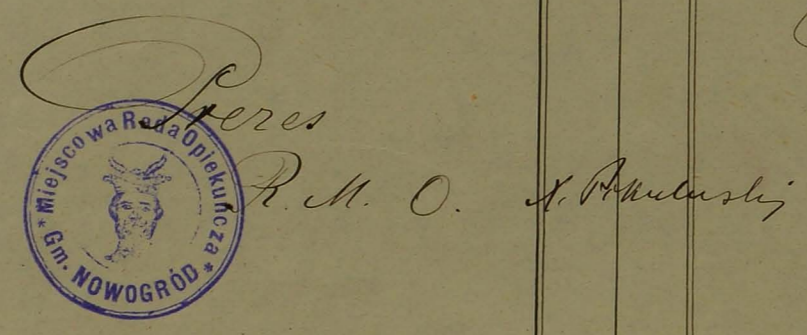 Prezes
R. M. O. X.
Miejscowa Rada Opiekuńcza
Gm. NOWOGRÓD